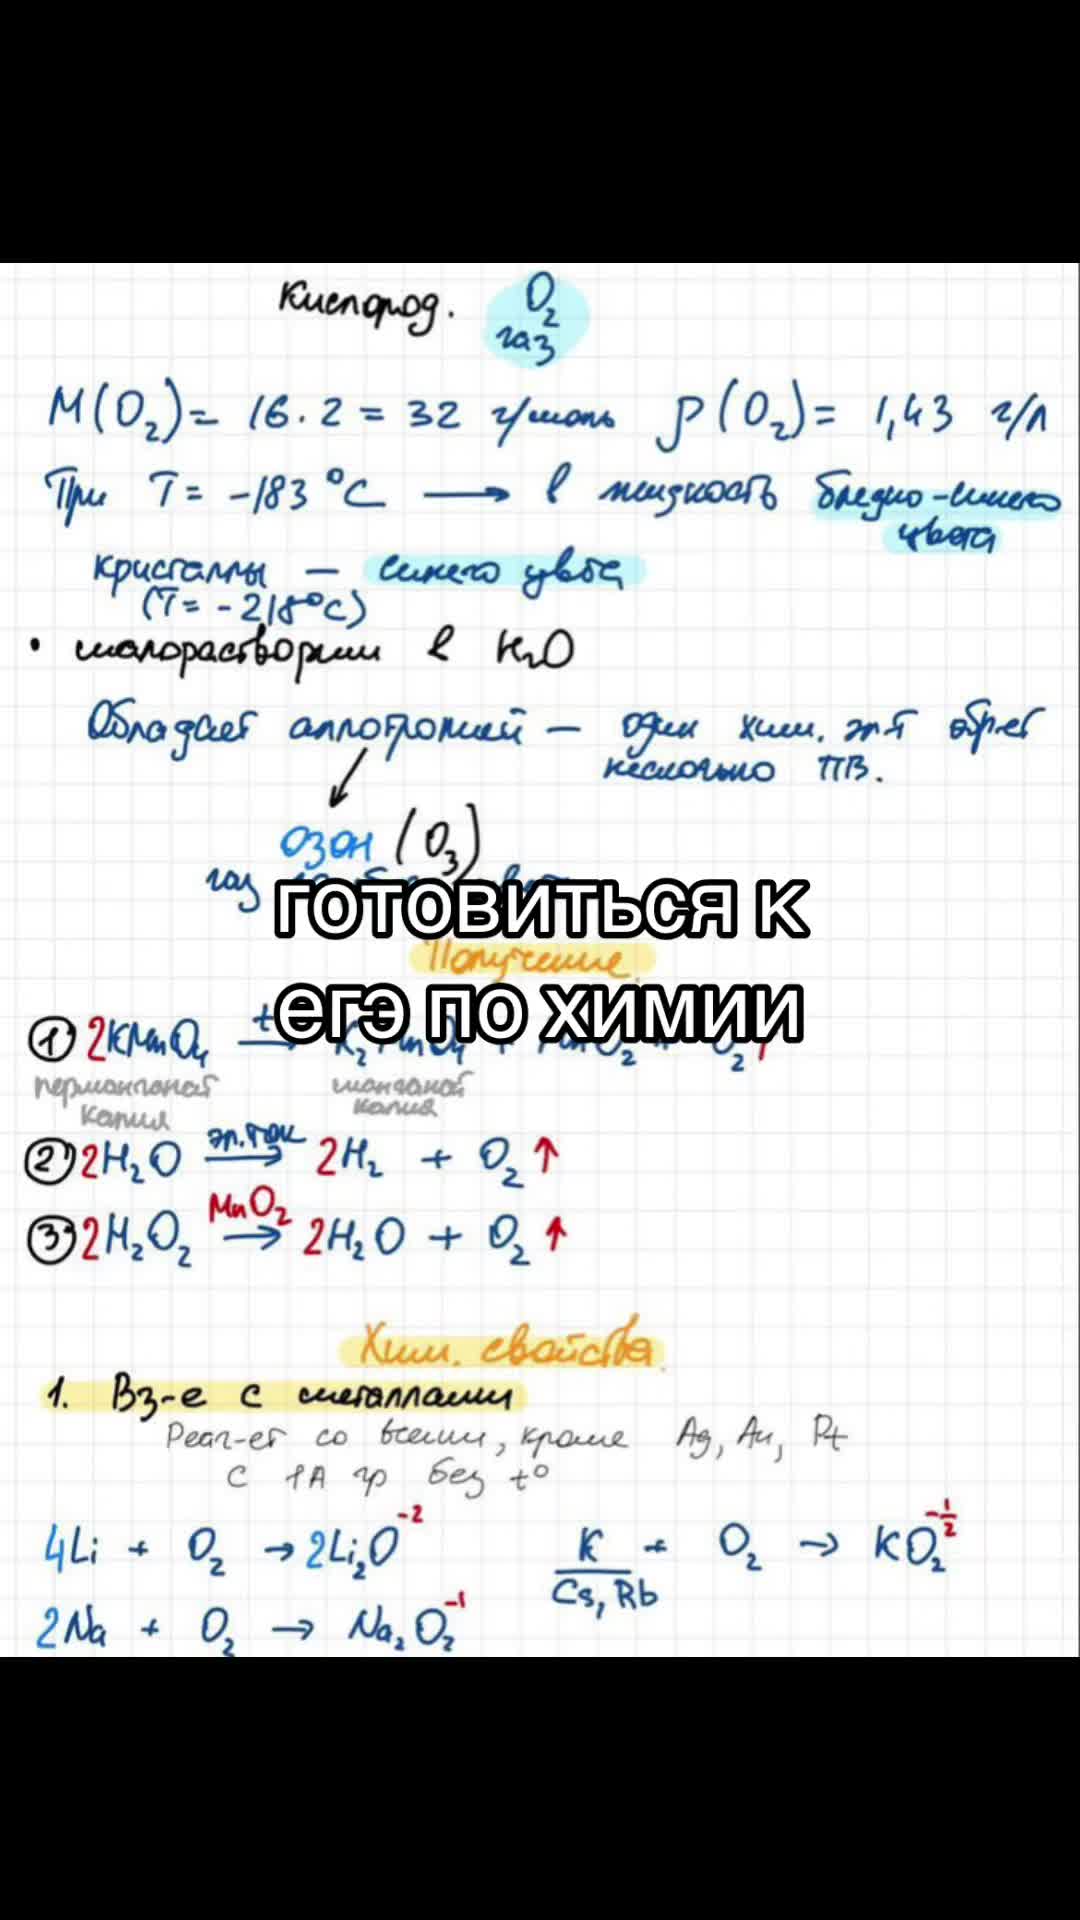 Кислород. O₂
газ
M(O₂) = 16 · 2 = 32 г/моль ρ(O₂) = 1,43 г/л
При T = -183 °C → в жидкость бледно-синего
цвета
кристаллы — синего цвета
(T = -218°C)
• малорастворим в H₂O
Обладает аллотропией — один хим. эл-т обр-ет
несколько ПВ.
озон (O₃)
газ
готовиться к
егэ по химии
Получение
① 2KMnO₄ t→ K₂MnO₄ + MnO₂ + O₂↑
перманганат манганат
калия калия
② 2H₂O эл.ток→ 2H₂ + O₂↑
③ 2H₂O₂ MnO₂→ 2H₂O + O₂↑
Хим. свойства.
1. Вз-е с металлами
Реаг-ет со всеми, кроме Ag, Au, Pt
с IA гр без t°
4Li + O₂ → 2Li₂O⁻² K + O₂ → KO₂^-1/2
Cs, Rb
2Na + O₂ → Na₂O₂⁻¹